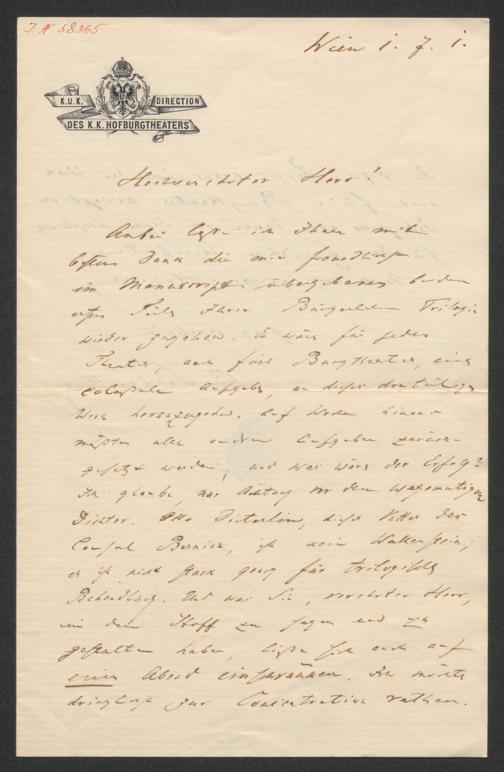 J.N. 58365
Wien 1. 7. 1.
K.U.K. DIRECTION
DES K.K. HOFBURGTHEATERS
Hochverehrter Herr!
Anbei lasse ich Ihnen mit
bestem Dank die mir freundlichst
im Manuscript übergebenen beiden
ersten Teile Ihrer Bürgerlichen Trilogie
wieder zugehen. Es wäre für jedes
Theater, auch fürs Burgtheater, eine
colossale Aufgabe, an dieses dreiteilige
Werk heranzugehen. Auf Wochen hinaus
müßten alle anderen Aufgaben zurück-
gesetzt werden, und was wäre der Erfolg?
Ich glaube, nur Achtung vor dem wagemutigen
Dichter. Otto, dieser Vetter des
Consul Bernick, ist kein Wallenstein;
er ist nicht stark genug für trilogische
Behandlung. Und was Sie, verehrter Herr,
in dem Stoff zu sagen und zu
gestalten haben, ließe sich auch auf
einen Abend einschränken. Ich möchte
dringlichst zur Concentration rathen.